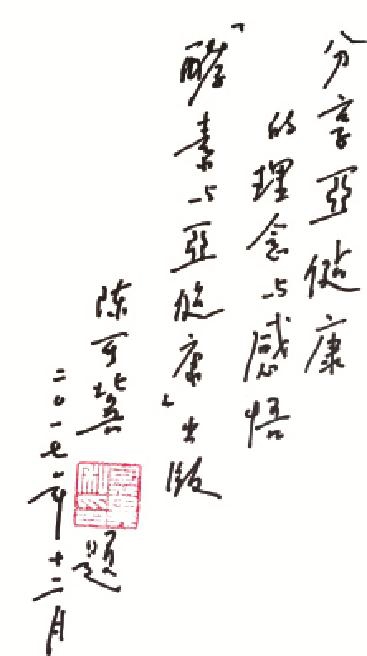 分享亞健康
的理念与感悟
「酵素与亞健康」出版
陈可冀 題
二〇一七年十二月